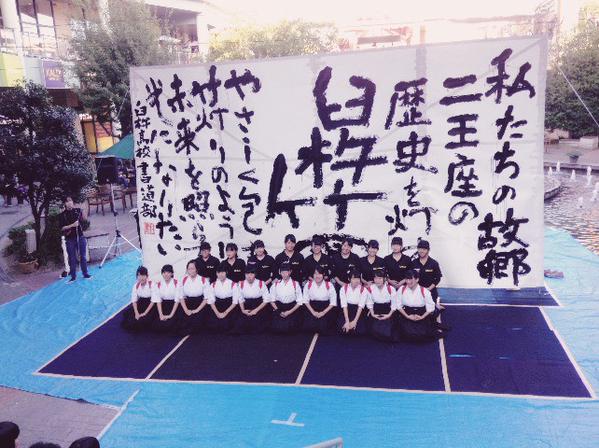 私たちの故郷
二王座の
歴史を灯
臼杵
竹
やさしく包
竹灯りのよう
未来を照
光になりたい
臼杵高校書道部